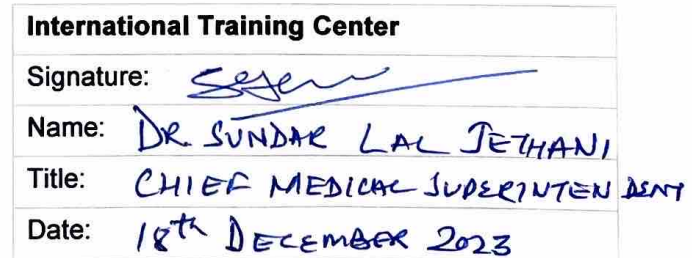 International Training Center
Signature:
Name: DR. SUNDAR LAL JETHANI
Title: CHIEF MEDICAL SUPERINTENDENT
Date: 18th DECEMBER 2023